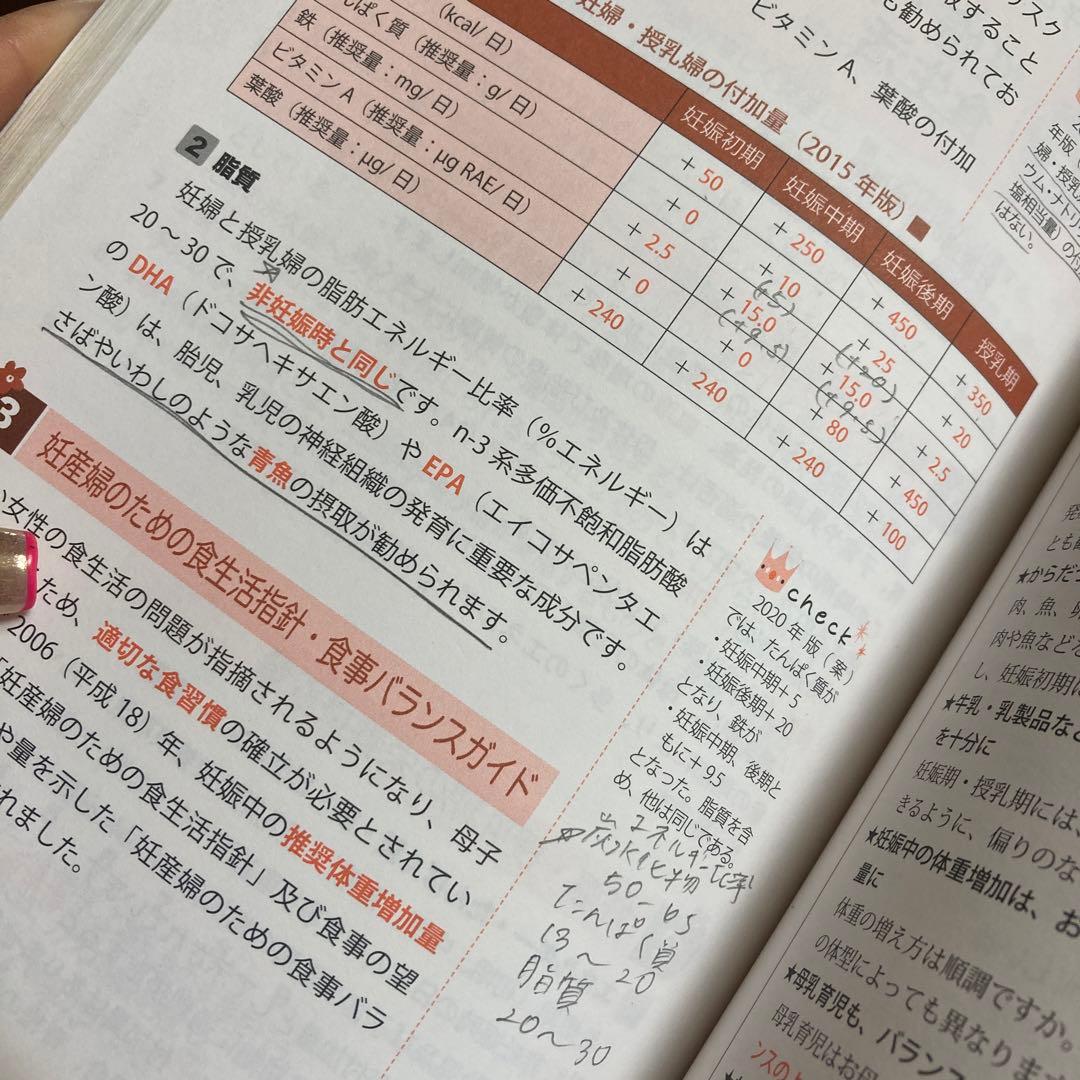 スク
すること
も勧められてお
ビタミンA、葉酸の付加
妊婦・授乳婦の付加量（2015年版）
妊娠初期 妊娠中期 妊娠後期 授乳期
（kcal/日） +50 +250 +450 +350
ぱく質（推奨量：g/日） +0 +10 (+5) +25 (+20) +20
鉄（推奨量：mg/日） +2.5 +15.0 (+9.5) +15.0 (+9.5) +2.5
ビタミンA（推奨量：μg RAE/日） +0 +0 +80 +450
葉酸（推奨量：μg/日） +240 +240 +240 +100
2 脂質
妊婦と授乳婦の脂肪エネルギー比率（％エネルギー）は
20～30で、非妊娠時と同じです。n-3系多価不飽和脂肪酸
のDHA（ドコサヘキサエン酸）やEPA（エイコサペンタエ
ン酸）は、胎児、乳児の神経組織の発育に重要な成分です。
さばやいわしのような青魚の摂取が勧められます。
3
妊産婦のための食生活指針・食事バランスガイド
女性の食生活の問題が指摘されるようになり、母子
ため、適切な食習慣の確立が必要とされてい
2006（平成18）年、妊娠中の推奨体重増加量
「妊産婦のための食生活指針」及び食事の望
や量を示した「妊産婦のための食事バラ
れました。
年版
婦・授乳
ウム・ナトリ
塩相当量）の付
はない。
check
2020年版（案）
では、たんぱく質が
・妊娠中期+5
・妊娠後期+20
となり、鉄が
・妊娠中期、後期と
もに+9.5
となった。脂質を含
め、他は同じである。
エネルギー比率
炭水化物
50-65
たんぱく質
13～20
脂質
20～30
発
とも
★からだつ
肉、魚、
肉や魚などな
し、妊娠初期に
★牛乳・乳製品など
を十分に
妊娠期・授乳期には、
きるように、偏りのな
★妊娠中の体重増加は、お
量に
体重の増え方は順調ですか。
の体型によっても異なります
★母乳育児も、バランス
母乳育児はお母
ンスの